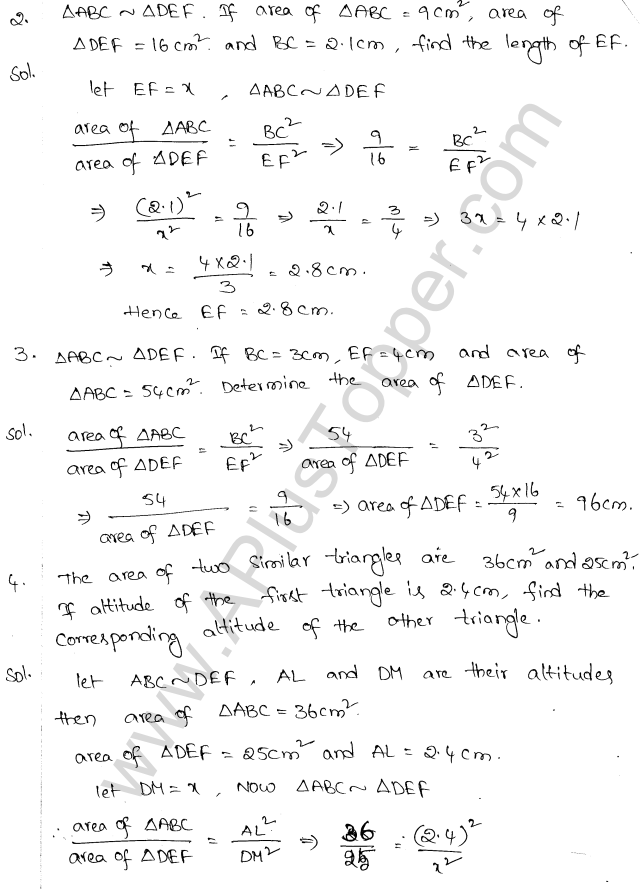 2. △ABC ~ △DEF. If area of △ABC = 9cm², area of
△DEF = 16cm². and BC = 2.1cm, find the length of EF.
Sol.
let EF = x , △ABC ~ △DEF
area of △ABC / area of △DEF = BC² / EF² ⇒ 9/16 = BC² / EF²
⇒ (2.1)² / x² = 9/16 ⇒ 2.1/x = 3/4 ⇒ 3x = 4 × 2.1
⇒ x = 4×2.1 / 3 = 2.8cm.
Hence EF = 2.8cm.
3. △ABC ~ △DEF. If BC = 3cm, EF = 4cm and area of
△ABC = 54cm². Determine the area of △DEF.
Sol. area of △ABC / area of △DEF = BC² / EF² ⇒ 54 / area of △DEF = 3² / 4²
⇒ 54 / area of △DEF = 9/16 ⇒ area of △DEF = 54×16 / 9 = 96cm.
4. The area of two similar triangles are 36cm² and 25cm².
If altitude of the first triangle is 2.4cm, find the
corresponding altitude of the other triangle.
Sol. let ABC ~ DEF, AL and DM are their altitudes
then area of △ABC = 36cm².
area of △DEF = 25cm² and AL = 2.4cm.
let DM = x , Now △ABC ~ △DEF
∴ area of △ABC / area of △DEF = AL² / DM² ⇒ 36/25 = (2.4)² / x²
www.APlusTopper.com